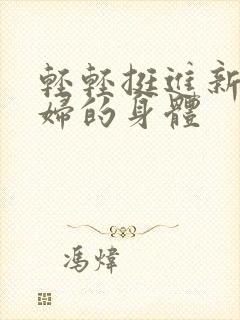 輕輕挺進新
婦的身體
馮煒